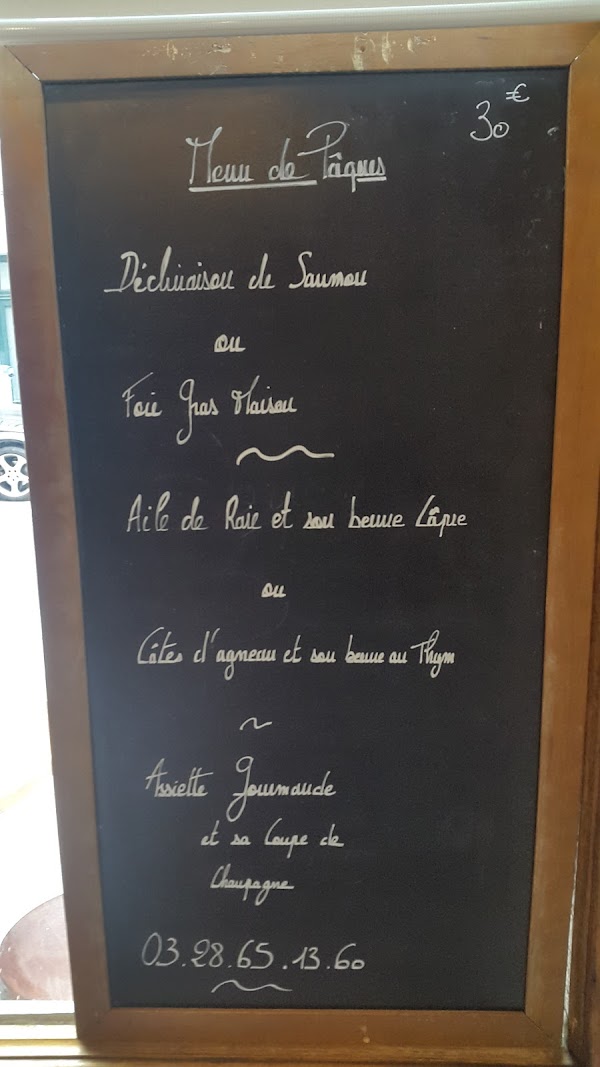 30 €
Menu de Pâques
Déclinaison de Saumon
ou
Foie Gras Maison
Aile de Raie et son beurre Câpre
ou
Côtes d'agneau et son beurre au Thym
Assiette Gourmande
et sa Coupe de
Champagne
03.28.65.13.60